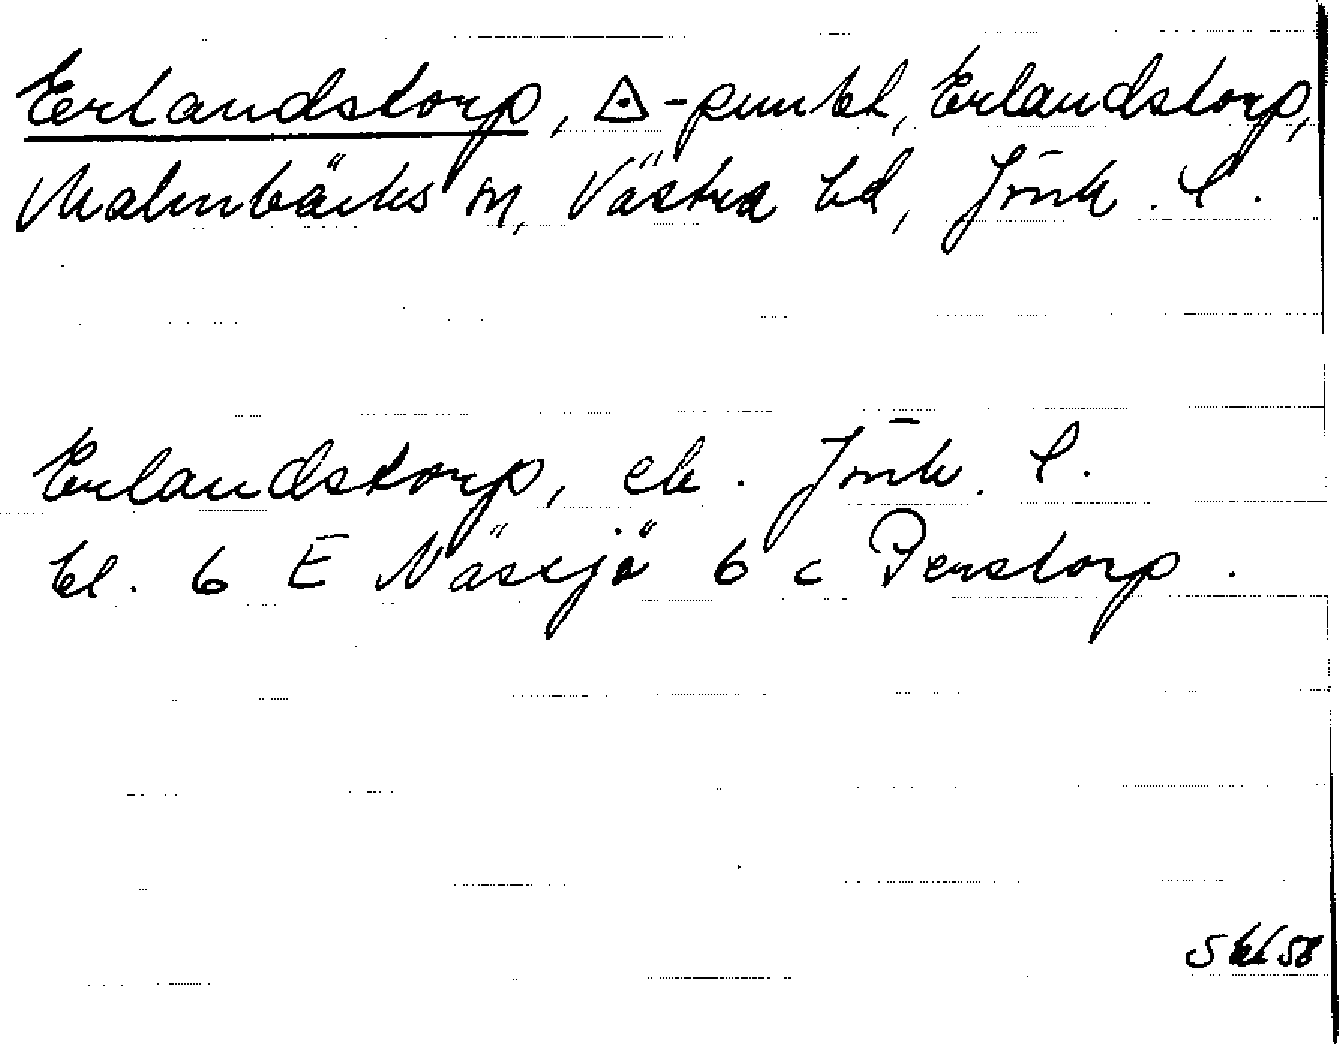 Erlandstorp, △-punkt, Erlandstorp,
Malmbäcks sn, Västra hd, Jönk. l.
Erlandstorp, ek. Jönk. l.
bl. 6 E Nässjö 6 c Perstorp.